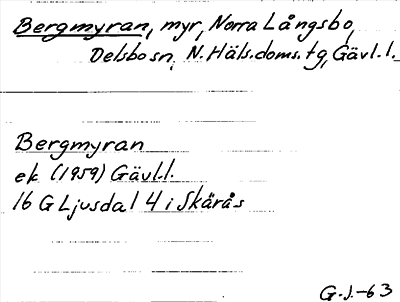 Bergmyran, myr, Norra Långsbo,
Delsbo sn, N. Häls. doms. tg, Gävl. l.
Bergmyran
ek (1959) Gävl.l.
16 G Ljusdal 4 i Skärås
G.J.-63